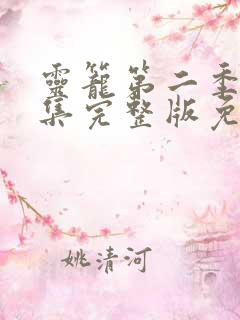 靈籠第二季
集完整版免
姚清河